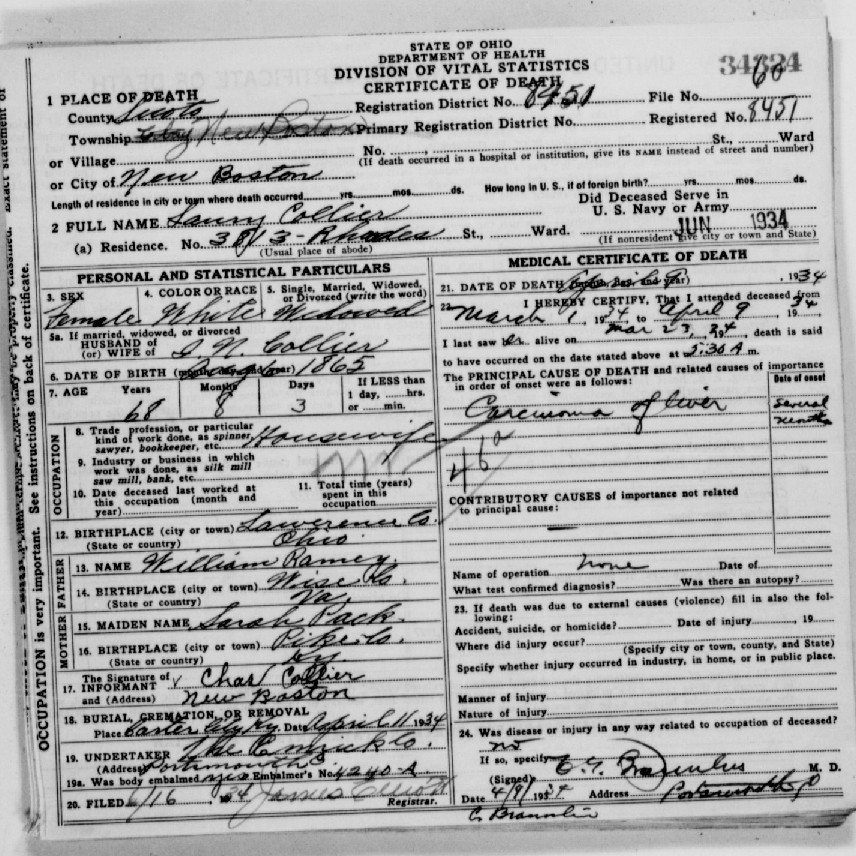 STATE OF OHIO
DEPARTMENT OF HEALTH
DIVISION OF VITAL STATISTICS
CERTIFICATE OF DEATH
34324
1 PLACE OF DEATH
County Scioto Registration District No. 8451 File No. 60
Township New Boston Primary Registration District No. Registered No. 8451
or Village No. St., Ward
(If death occurred in a hospital or institution, give its NAME instead of street and number)
or City of New Boston
Length of residence in city or town where death occurred yrs. mos. ds. How long in U. S., if of foreign birth? yrs. mos. ds.
2 FULL NAME Collier Did Deceased Serve in U. S. Navy or Army
JUN 1934
(a) Residence. No. 3813 Rhodes St., Ward.
(Usual place of abode) (If nonresident give city or town and State)
PERSONAL AND STATISTICAL PARTICULARS
3. SEX 4. COLOR OR RACE 5. Single, Married, Widowed, or Divorced (write the word)
Female White Widowed
5a. If married, widowed, or divorced
HUSBAND of
(or) WIFE of Collier
6. DATE OF BIRTH (month, day, and year) 1865
7. AGE Years Months Days If LESS than
1 day, hrs.
or min.
68 8 3
OCCUPATION
8. Trade profession, or particular
kind of work done, as spinner,
sawyer, bookkeeper, etc. Housewife
9. Industry or business in which
work was done, as silk mill
saw mill, bank, etc.
10. Date deceased last worked at
this occupation (month and
year)
11. Total time (years)
spent in this
occupation
12. BIRTHPLACE (city or town) Lawrence Co.
(State or country) Ohio
FATHER
13. NAME William Ramey
14. BIRTHPLACE (city or town) Wise Co.
(State or country) Va
MOTHER
15. MAIDEN NAME Sarah Pack
16. BIRTHPLACE (city or town) Pike Co.
(State or country) Ky.
17. The Signature of
INFORMANT Chas Collier
and (Address) New Boston
18. BURIAL, CREMATION, OR REMOVAL
Place Carter City Ky Date April 11 1934
19. UNDERTAKER The Co.
(Address) Portsmouth O
19a. Was body embalmed yes Embalmer's No. 4240-A
20. FILED 6/16, 1934 James Registrar.
MEDICAL CERTIFICATE OF DEATH
21. DATE OF DEATH (month, day, and year) April 9, 1934
22. I HEREBY CERTIFY, That I attended deceased from
March 1, 1934 to April 9, 1934
I last saw alive on Mar 23, 34, death is said
to have occurred on the date stated above at 5:30 A m.
The PRINCIPAL CAUSE OF DEATH and related causes of importance
in order of onset were as follows:
Date of onset
Carcinoma of liver several months
46a
CONTRIBUTORY CAUSES of importance not related
to principal cause:
Name of operation none Date of
What test confirmed diagnosis? Was there an autopsy?
23. If death was due to external causes (violence) fill in also the following:
Accident, suicide, or homicide? Date of injury , 19
Where did injury occur?
(Specify city or town, county, and State)
Specify whether injury occurred in industry, in home, or in public place.
Manner of injury
Nature of injury
24. Was disease or injury in any way related to occupation of deceased?
no
If so, specify
(Signed) M. D.
Date 4/9/1934 Address Portsmouth O
OCCUPATION is very important. See instructions on back of certificate.